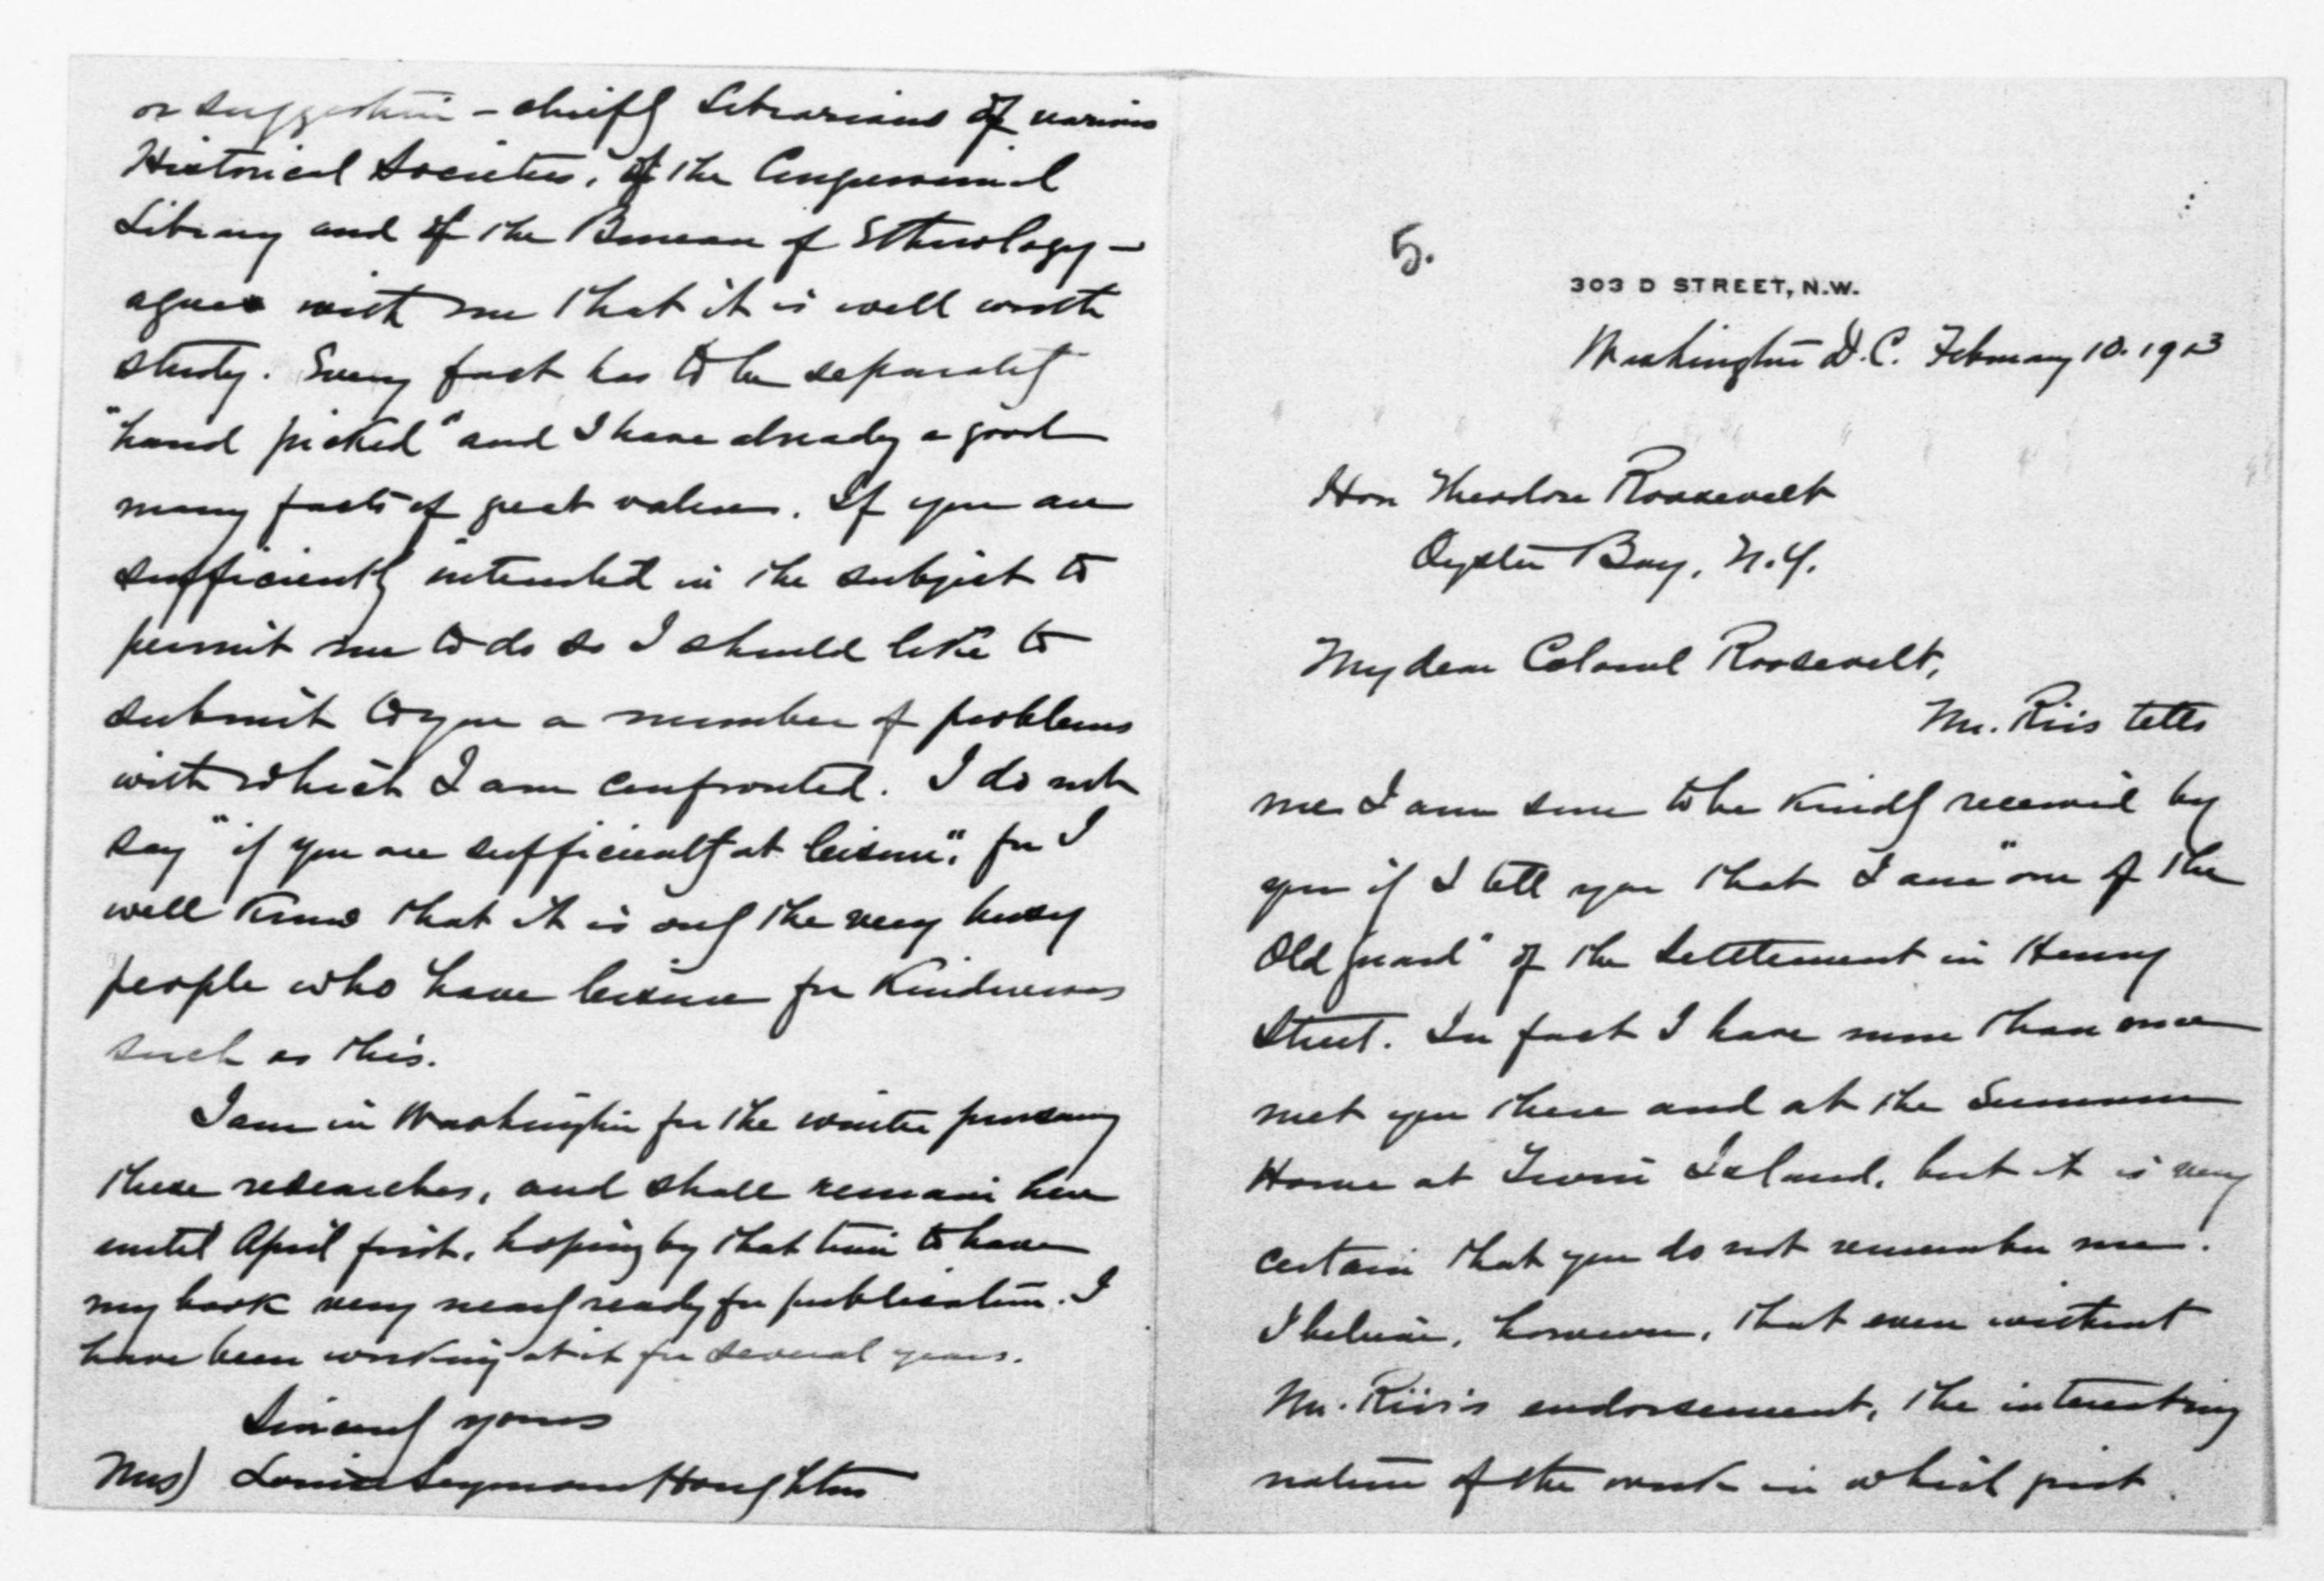 5.
303 D STREET, N.W.
Washington D.C. February 10. 1913
Hon Theodore Roosevelt
Oyster Bay, N.Y.
My dear Colonel Roosevelt,
Mr. Riis tells
me I am sure to be kindly received by
you if I tell you that I am "one of the
Old guard" of the Settlement in Henry
Street. In fact I have more than once
met you there and at the Summer
Home at Twin Island, but it is very
certain that you do not remember me.
I believe, however, that even without
Mr. Riis's endorsement, the interesting
nature of the work in which just
or suggestion - chiefly Librarians of various
Historical Societies, of the Congressional
Library and of the Bureau of Ethnology -
agree with me that it is well worth
study. Every fact has to be separately
"hand picked" and I have already a good
many facts of great value. If you are
sufficiently interested in the subject to
permit me to do so I should like to
submit to you a number of problems
with which I am confronted. I do not
say "if you are sufficiently at leisure", for I
well know that it is only the very busy
people who have leisure for kindnesses
such as this.
I am in Washington for the winter pursuing
these researches, and shall remain here
until April first, hoping by that time to have
my book very nearly ready for publication. I
have been working at it for several years.
Sincerely yours
Mrs) Louise Seymour Houghton